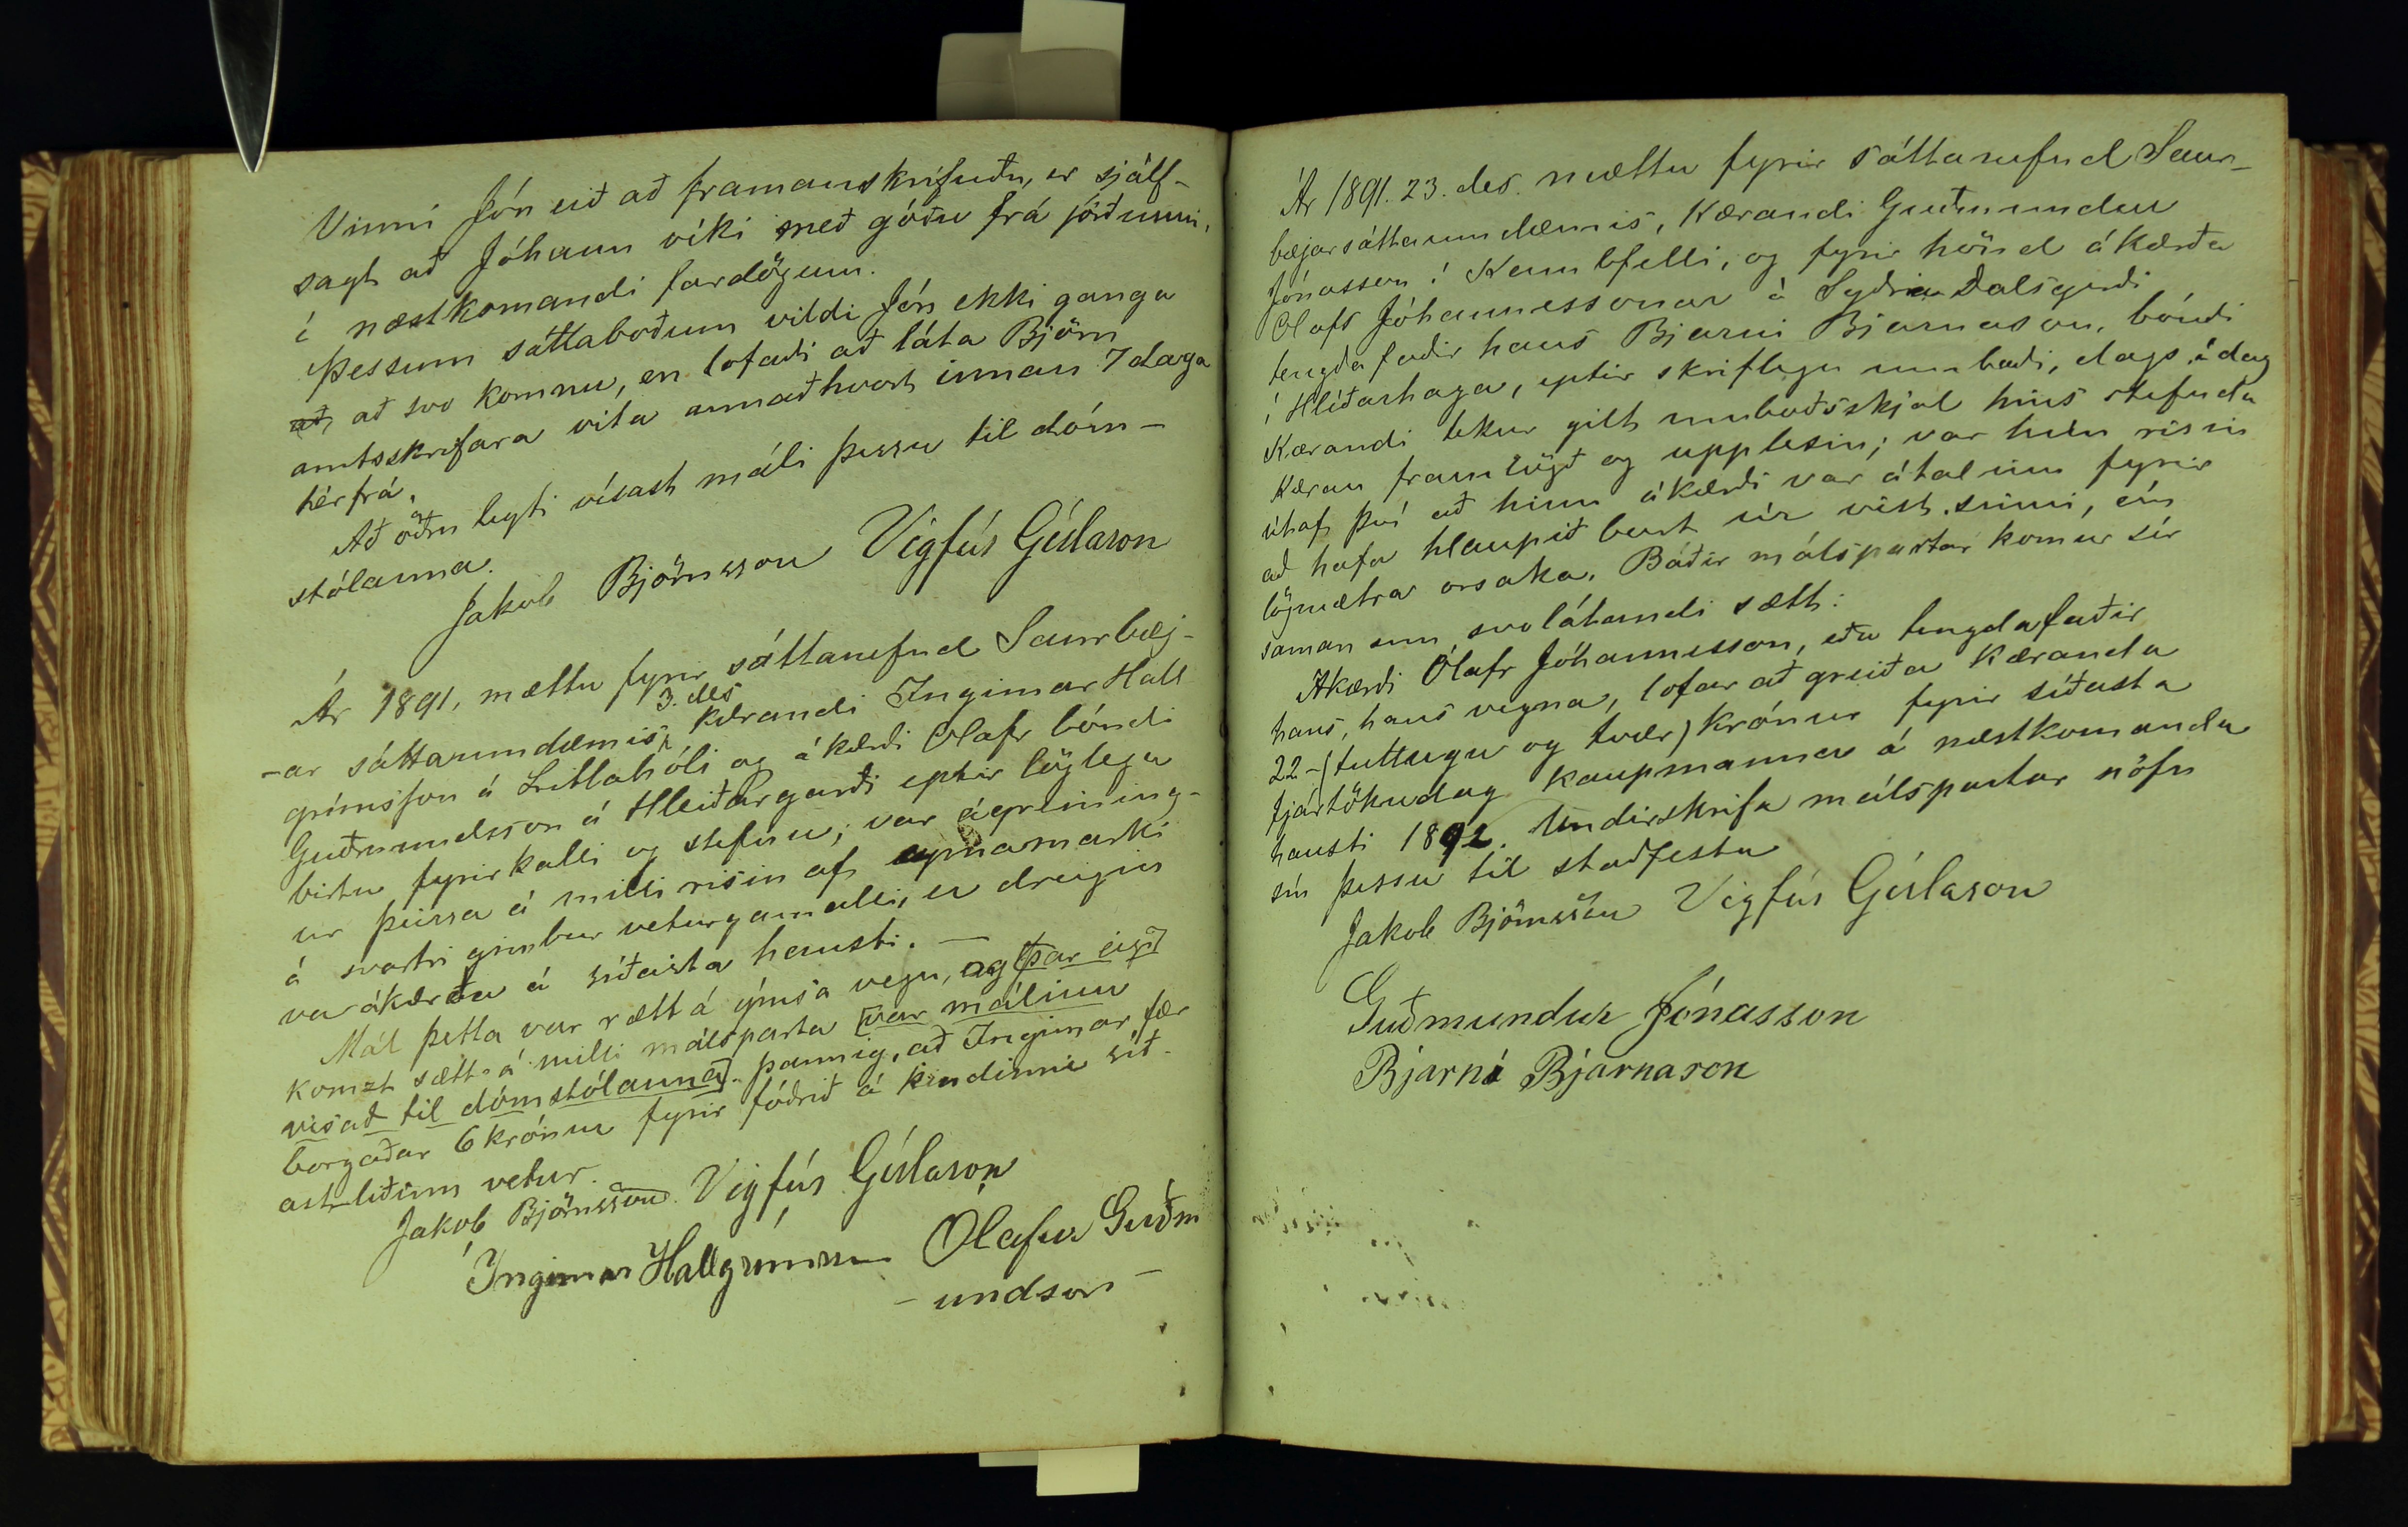 Vinni Jón eið að framanskrifuðu, er sjálf-
sagt að Jóhann víki með góðu frá jörðunni,
í næstkomandi fardögum.
Þessum sáttaboðum vildi Jón ekki ganga
að, að svo komnu, en lofaði að láta Björn
amtsskrifara vita annaðhvort innan 7 daga
hér frá.
Að öðru leyti vísast máli þessu til dóm-
stólanna.
Jakob Björnsson Vigfús Gíslason
Ár 1891, mættu fyrir sáttanefnd Saurbæj-
3. des
-ar sáttaumdæmis, kærandi Ingimar Hall
grímsson á Litlahóli og ákærði Olafr bóndi
Guðmundsson á Hleiðargarði eptir löglega
birtu fyrirkalli og stefnu; var ágreining-
ur þeirra á milli risin af eyrnamarki
á svartri gimbur veturgamalli, er dregin
var ákærða á síðasta hausti. —
Mál þetta var rætt á ýmsa vegu, og [þar eigi
komst sætt á milli málsparta [var málinu
vísað til dómstólanna]. þannig, að Ingimar fær
borgaðar 6 krónur fyrir fóðrið á kindinni síð-
astliðinn vetur.
Jakob Björnsson Vigfús Gíslason
Ingimar Hallgrímsson Ólafur Guðm
- undson -
Ár 1891. 23. des. mættu fyrir sáttanefnd Saur-
bæjarsáttaumdæmis, Kærandi Guðmundur
Jónasson í Kambfelli, og fyrir hönd ákærða
Olafs Jóhannessonar á Syðra Dalsgerði
tengdafaðir hans Bjarni Bjarnason, bóndi
í Hlíðarhaga, eptir skriflegu umboði, dags. í dag
Kærandi tekur gilt umboðsskjal hins stefnda
Kæran framlögð og upplesin; var hún risin
útaf því að hinn ákærði var átalinn fyrir
að hafa hlaupið burt úr vist sinni, án
lögmætra orsaka. Báðir málspartar komur sér
saman um svolátandi sætt:
Ákærði Ólafr Jóhannesson, eða tengdafaðir
hans, hans vegna, lofar að greiða Kæranda
22-(tuttugu og tvær) krónur fyrir síðasta
fjártökudag kaupmanna á næstkomanda
hausti 1892. Undirskrifa málspartar nöfn
sín þessu til staðfestu
Jakob Björnsson Vigfús Gíslason
Guðmundur Jónasson
Bjarni Bjarnason